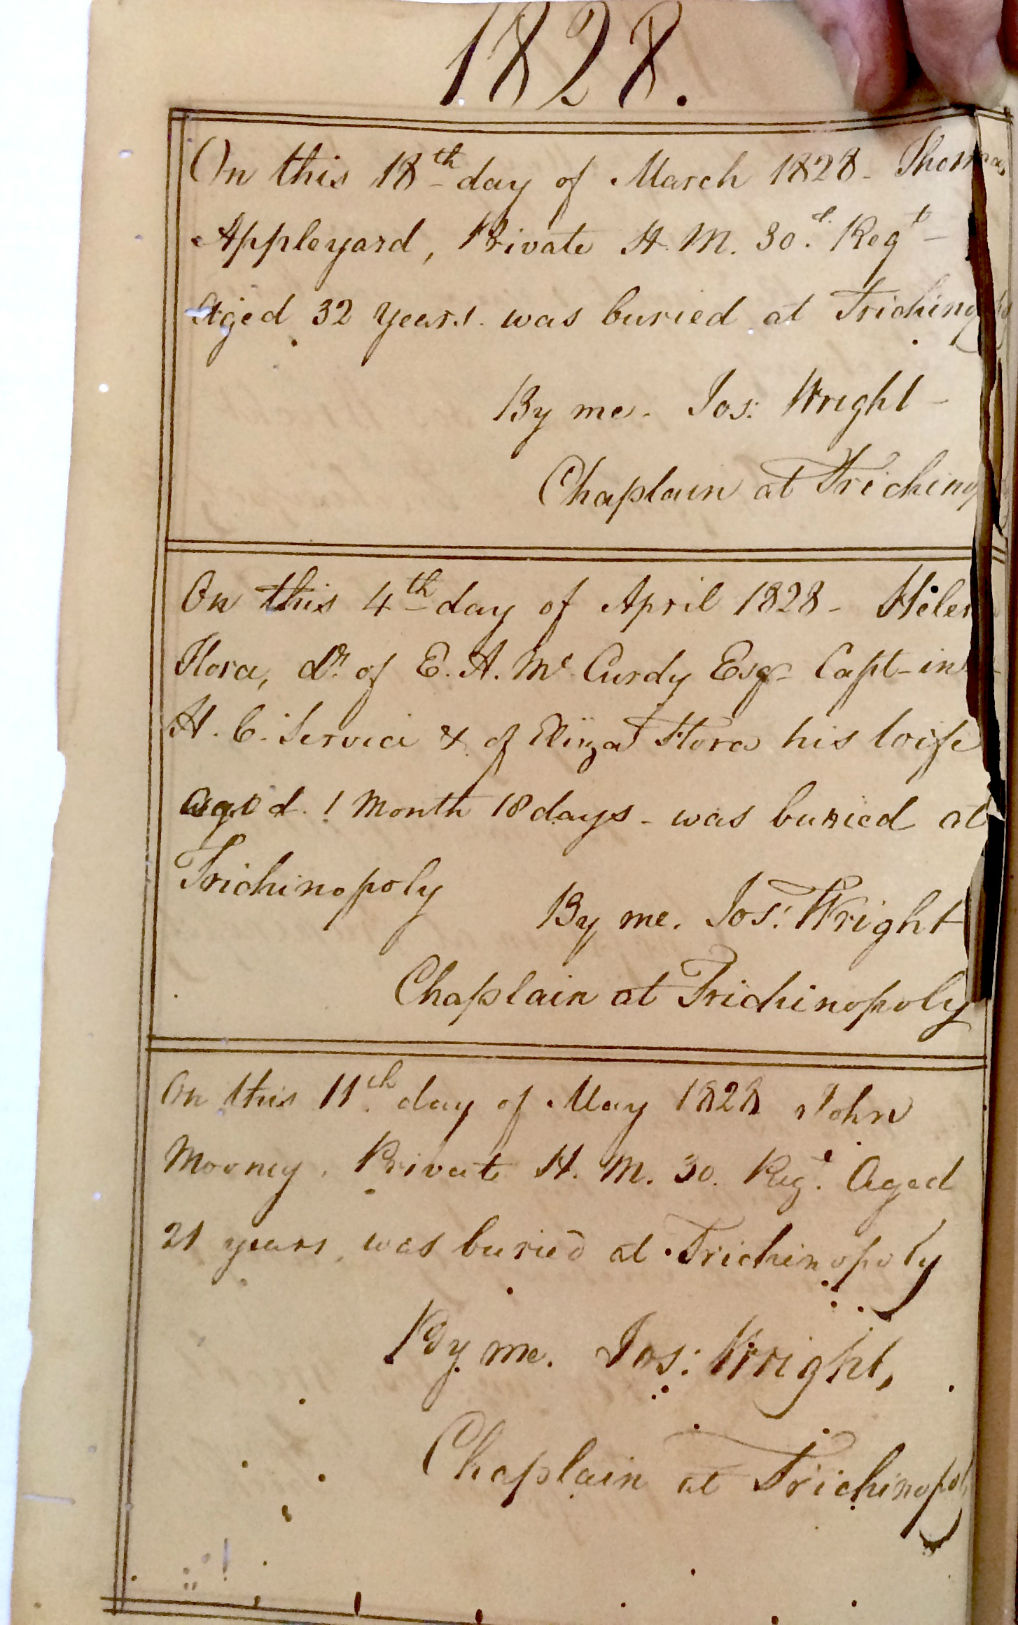 1828.
On this 18th day of March 1828 - Thomas
Appleyard, Private H. M. 30.d Regt -
Aged 32 years. was buried at Trichinopo
By me. Jos: Wright -
Chaplain at Trichinop
On this 4th day of April 1828 - Helen
Flora, dr. of E. A. Mc Curdy Esqr Capt - in
H. C. Service & of Eliza Flora his wife
aged. 1 Month 18 days - was buried at
Trichinopoly
By me. Jos: Wright
Chaplain at Trichinopoly
On this 11th day of May 1828 John
Mooney. Private H. M. 30. Regt. Aged
21 years, was buried at Trichinopoly
By me. Jos: Wright,
Chaplain at Trichinopol